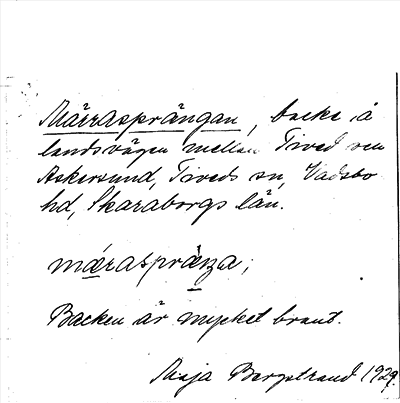 Märrasprängan, backe å
landsvägen mellan Tived och
Askersund, Tiveds sn, Vadsbo
hd, Skaraborgs län.
mæraspræŋa;
Backen är mycket brant.
Maja Bergstrand 1929.